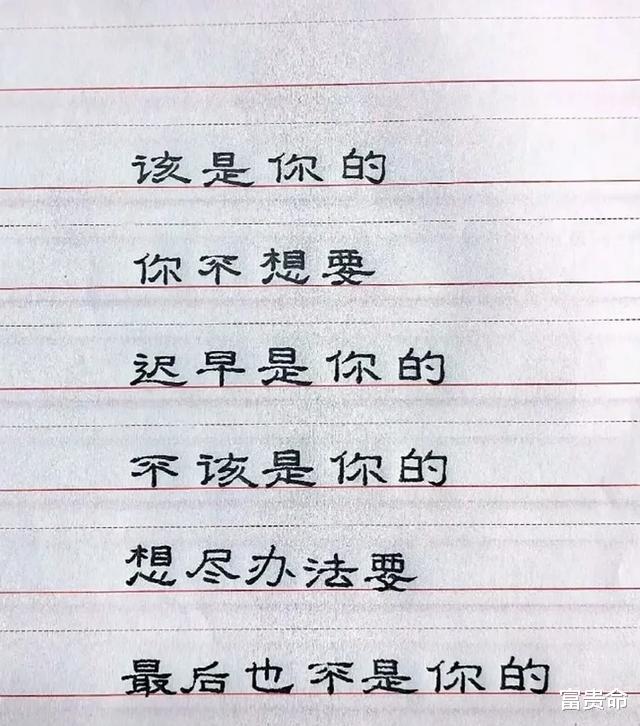 该是你的
你不想要
迟早是你的
不该是你的
想尽办法要
最后也不是你的
富贵命